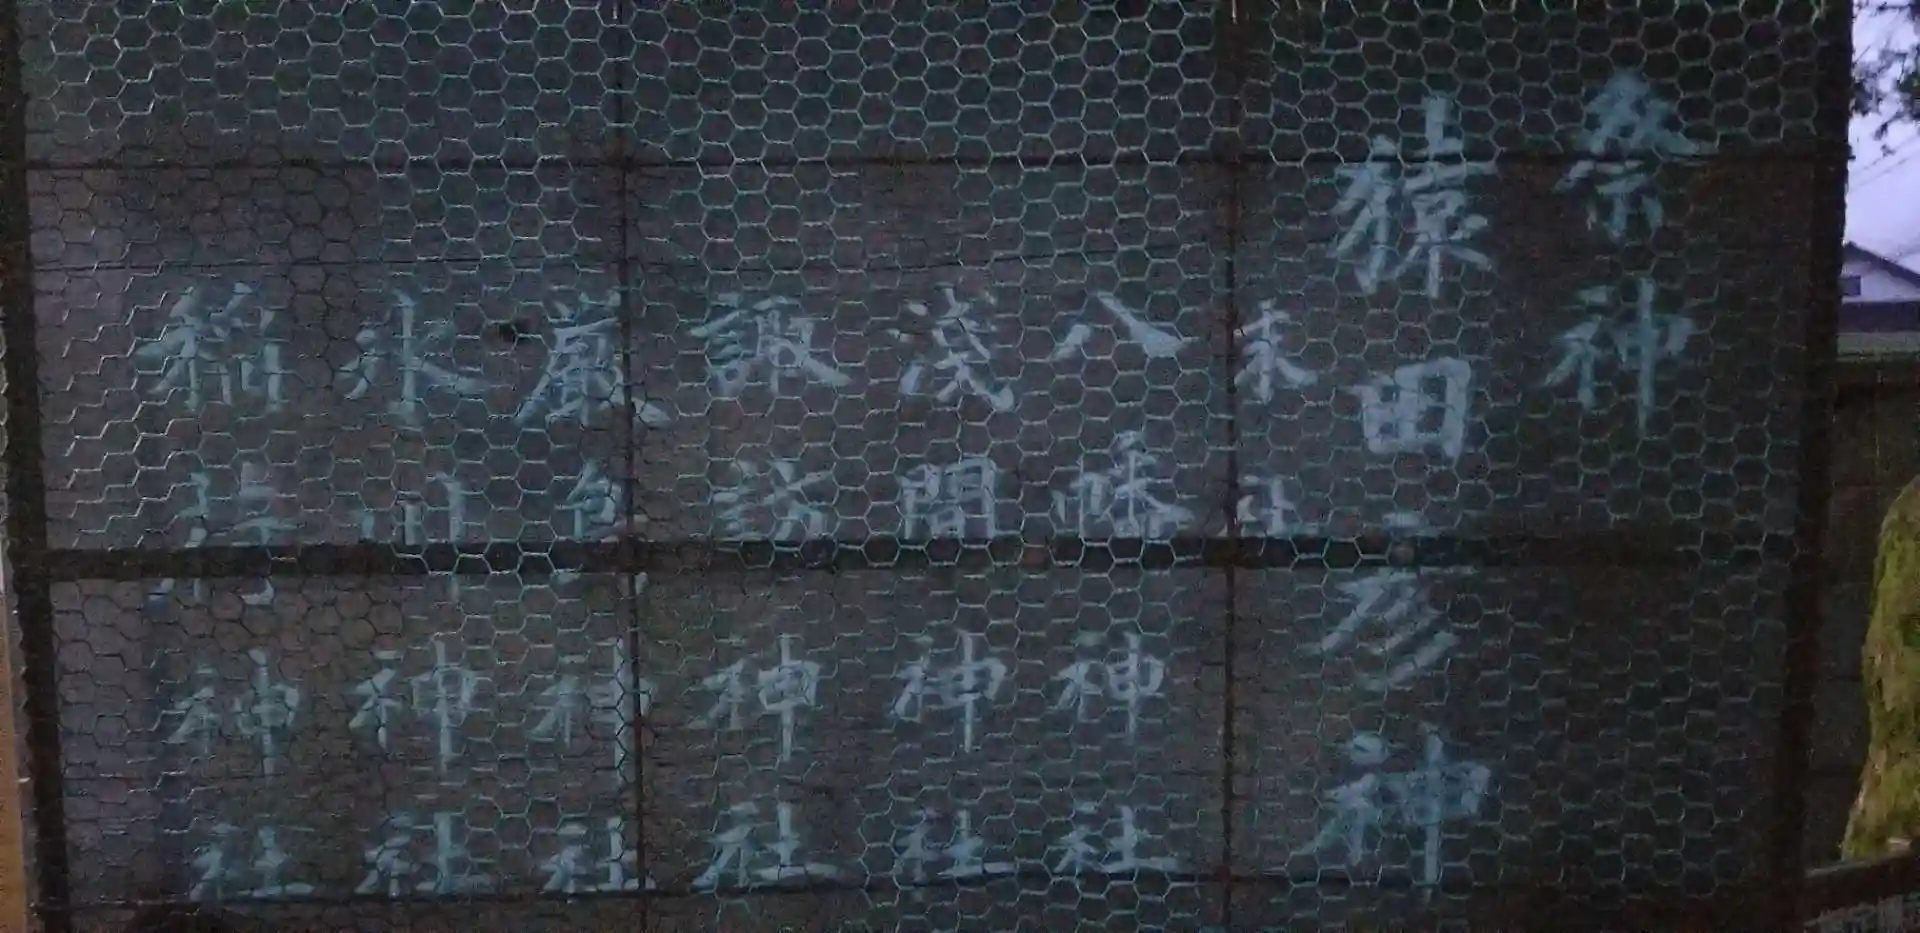 祭神
猿田彦神
末社
八幡神社
淺間神社
諏訪神社
嚴島神社
氷川神社
稲荷神社